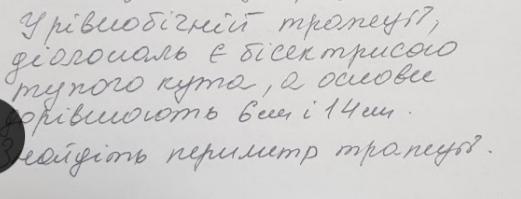 У рівнобічній трапеції,
діагональ є бісектрисою
тупого кута, а основи
дорівнюють 6см і 14см.
Знайдіть периметр трапеції.